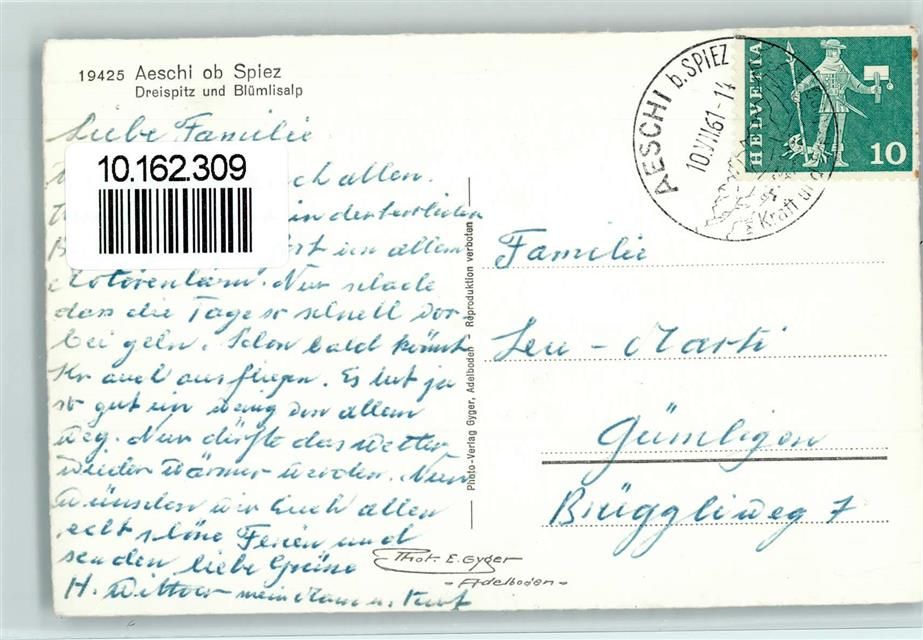 19425 Aeschi ob Spiez
Dreispitz und Blümlisalp
Liebe Familie
10.162.309
ch allen.
in der herrlichen
allem
Motorenlärm. Nur schade
dass die Tage so schnell vor-
bei gehn. Schon bald könnt
Ihr auch ausfliegen. Es tut ja
so gut ein wenig von allem
weg. Nur dürfte das Wetter
wieder wärmer werden. Nun
wünschen wir Euch allen
recht schöne Ferien und
senden liebe Grüsse
H.
Phot. E. Gyger
- Adelboden -
Photo-Verlag Gyger, Adelboden - Reproduktion verboten
AESCHI b. SPIEZ
10.VII.61-14
Kraft
HELVETIA
10
Familie
Leu - Marti
Gümligen
Brüggliweg 7